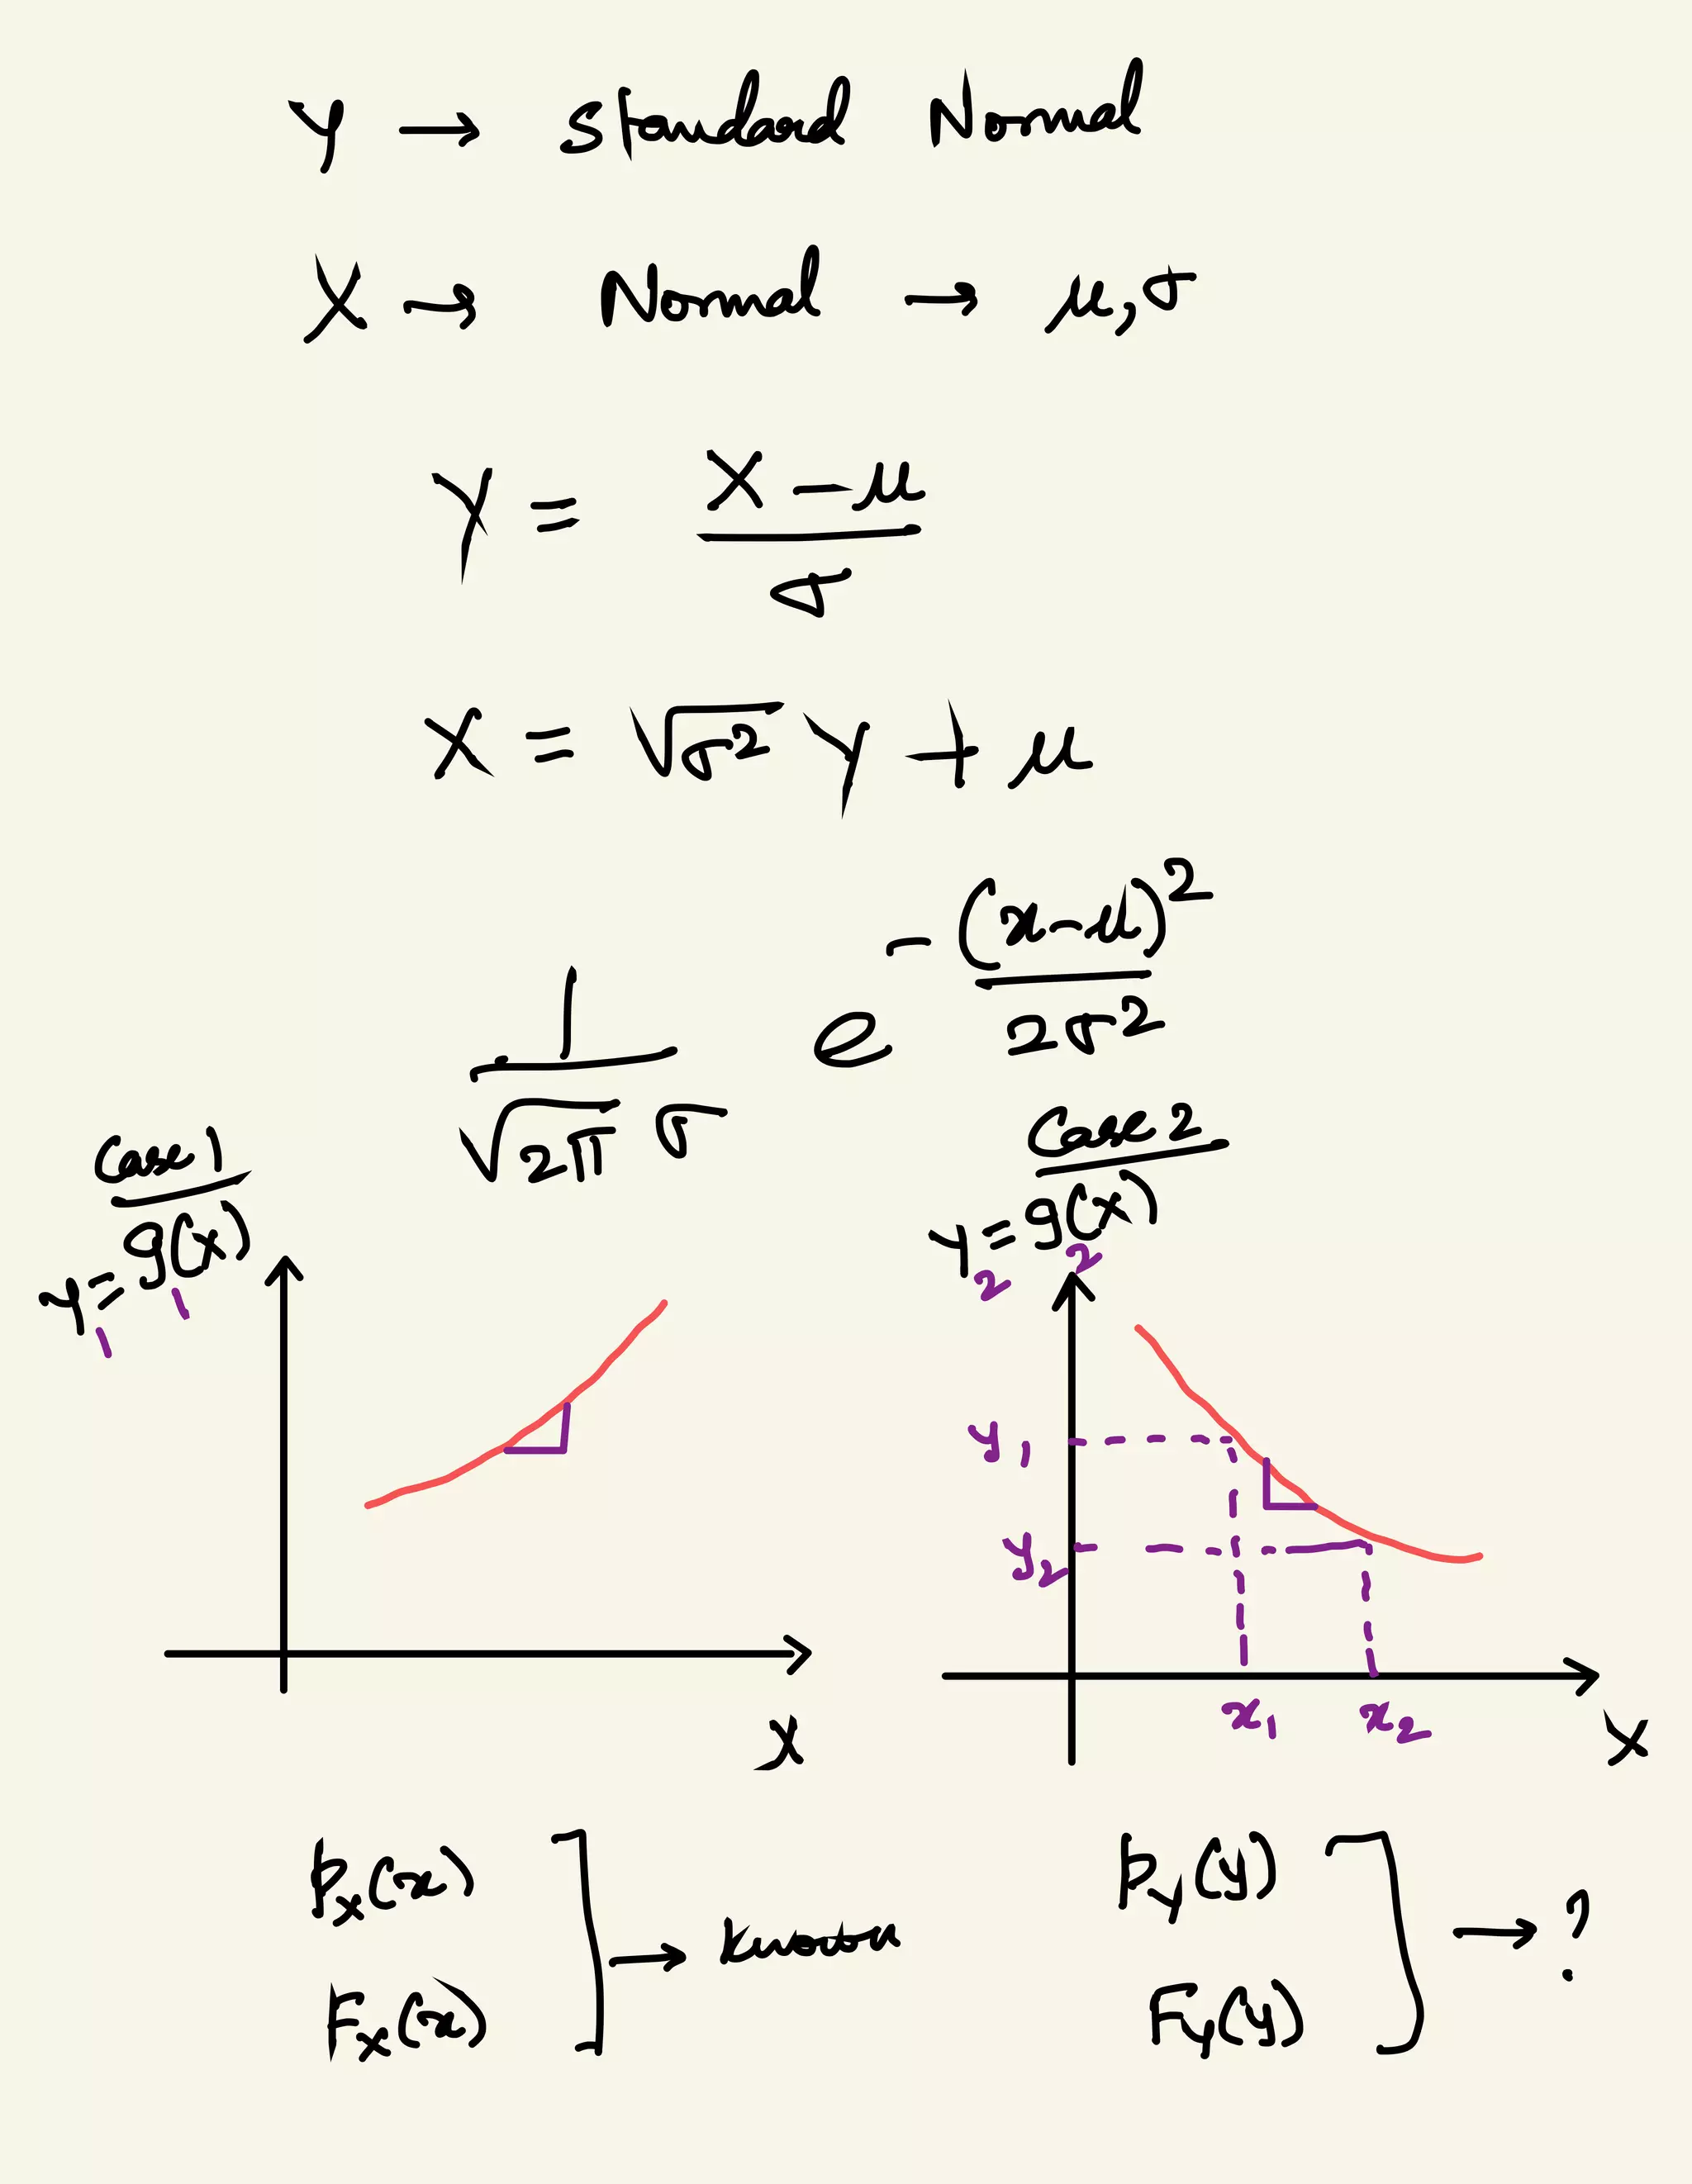 Y → Standard Normal
X → Normal → μ, σ
Y = (X - μ) / σ
X = √σ² Y + μ
1 / (√2π σ) e^(-(x-μ)² / 2σ²)
Case 1
Y₁ = g₁(X)
X
Case 2
Y₂ = g₂(X)
y₁
y₂
x₁ x₂
X
p_X(x)
F_X(x)
] → known
p_Y(y)
F_Y(y)
] → ?